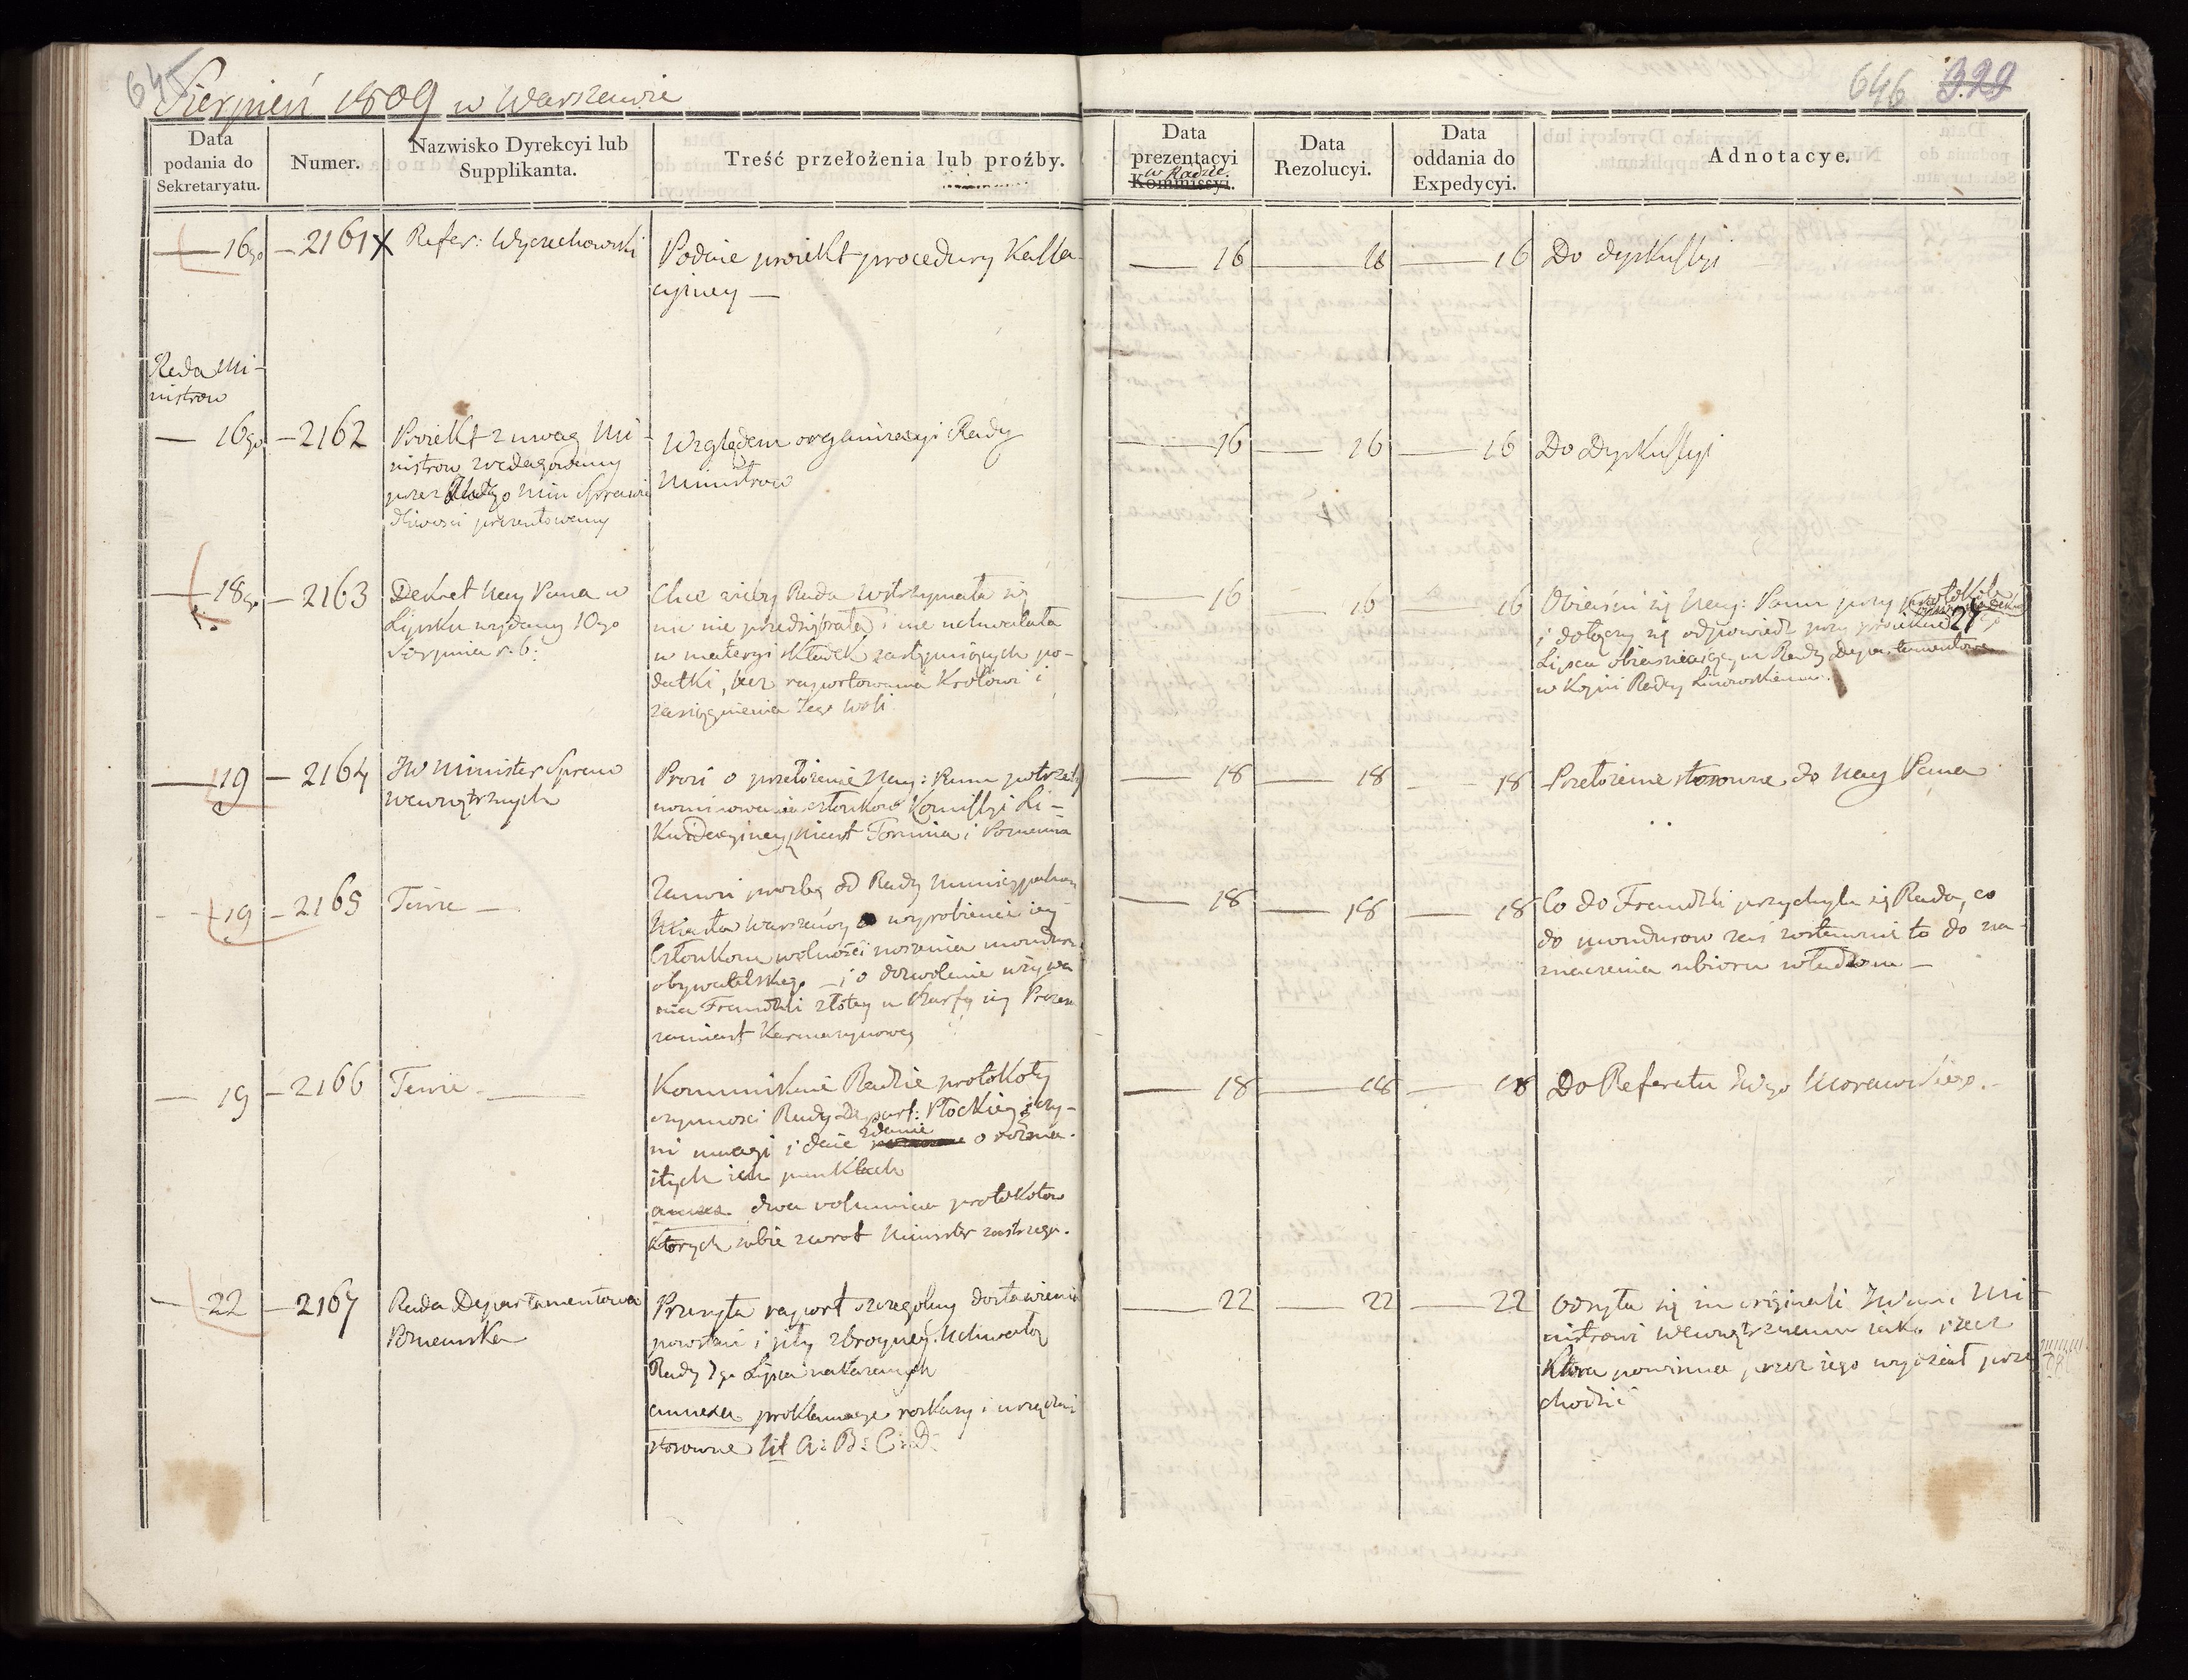 645
Sierpień 1809 w Warszawie
646 329
Data podania do Sekretaryatu.
Numer.
Nazwisko Dyrekcyi lub Supplikanta.
Treść przełożenia lub proźby.
Data prezentacyi Kommissyi. w Radzie
Data Rezolucyi.
Data oddania do Expedycyi.
Adnotacye.
— 16go — 2161 X
Refer: Wyczechowski
Podaie proiekt procedury Kassa-
cyiney —
— 16 — 16 — 16
Do dyskussyi
Rada Mi-
nistrow
— 16go — 2162
Proiekt z uwag Mi-
nistrow zredagowany
przez JWgo Min Sprawie
dliwosci prezentowany
Względem organizacyi Rady
Ministrow
— 16 — 16 — 16
Do Dyskussyi
— 18go — 2163
Dekret Nay Pana w
Lipsku wydany 10go
Sierpnia r. b:
Chce ażeby Rada wstrzymała się
nic nie przedsiębrała i nie uchwalała
w materyi składek zastępuiących po-
datki, bez raportowania Krolowi i
zasiągnienia Jego woli
— 16 — 16 — 16
Obiaśni się Nay: Panu przy protokole
i dołączy się odpowiedz przy 24go
Lipca obiasniaiącym Rady Departamentowe
w Kopii Rady Linowskiemu.
— 19 — 2164
JW Minister Spraw
wewnętrznych
Prosi o przełożenie Nay: Panu potrzeby
nominowania członkow Komissyi Li-
kwidacyiney Miast Torunia i Poznania
— 18 — 18 — 18
Przełożenie stosowne do Nay Pana
— 19 — 2165
Tenże —
Zanosi prozbę od Rady Municypalney
Miasta Warszawy o wyrobienie iey
Członkom wolności noszenia munduru
obywatelskiego — i o dozwolenie używa
nia Frendzli złotey u Szarfy iey Prezesa
zamiast Karmazynowey
— 18 — 18 — 18
Co do Frendzli przychyla się Rada, co
do mundurow zas zostawuie to do na-
znaczenia ubioru władzom —
— 19 — 2166
Tenże —
Kommunikuie Radzie protokoły
czynnosci Rady Depart: Płockiey czy-
ni uwagi i daie zdanie o rozma-
itych ich punktach
annexa dwa volumina protokołow
ktorych sobie zwrot Minister zastrzega.
— 18 — 18 — 18
Do Referatu JWgo Morawskiego.
— 22 — 2167
Rada Departamentowa
Poznanska
Przesyła raport szczegolny dostawienia
powstan i siły zbroyney Uchwałą
Rady 7go Lipca nakazanych
annexa proklamacye roskazy i urządzeni
stosowne lit A: B: C: D:
— 22 — 22 — 22
Odsyła się in originali JWmu Mi-
nistrowi Wewnętrznemu iako rzecz
ktora powinna przez iego wydział prze
chodzić